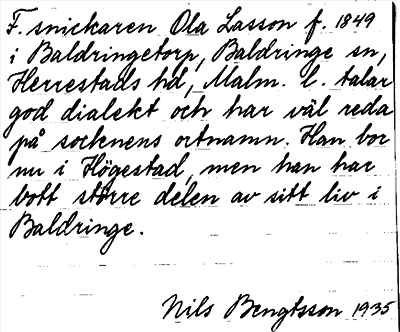 F. snickaren Ola Lasson f. 1849
i Baldringetorp, Baldringe sn,
Herrestads hd, Malm. l. talar
god dialekt och har väl reda
på socknens ortnamn. Han bor
nu i Högestad, men han har
bott större delen av sitt liv i
Baldringe.
Nils Bengtsson 1935